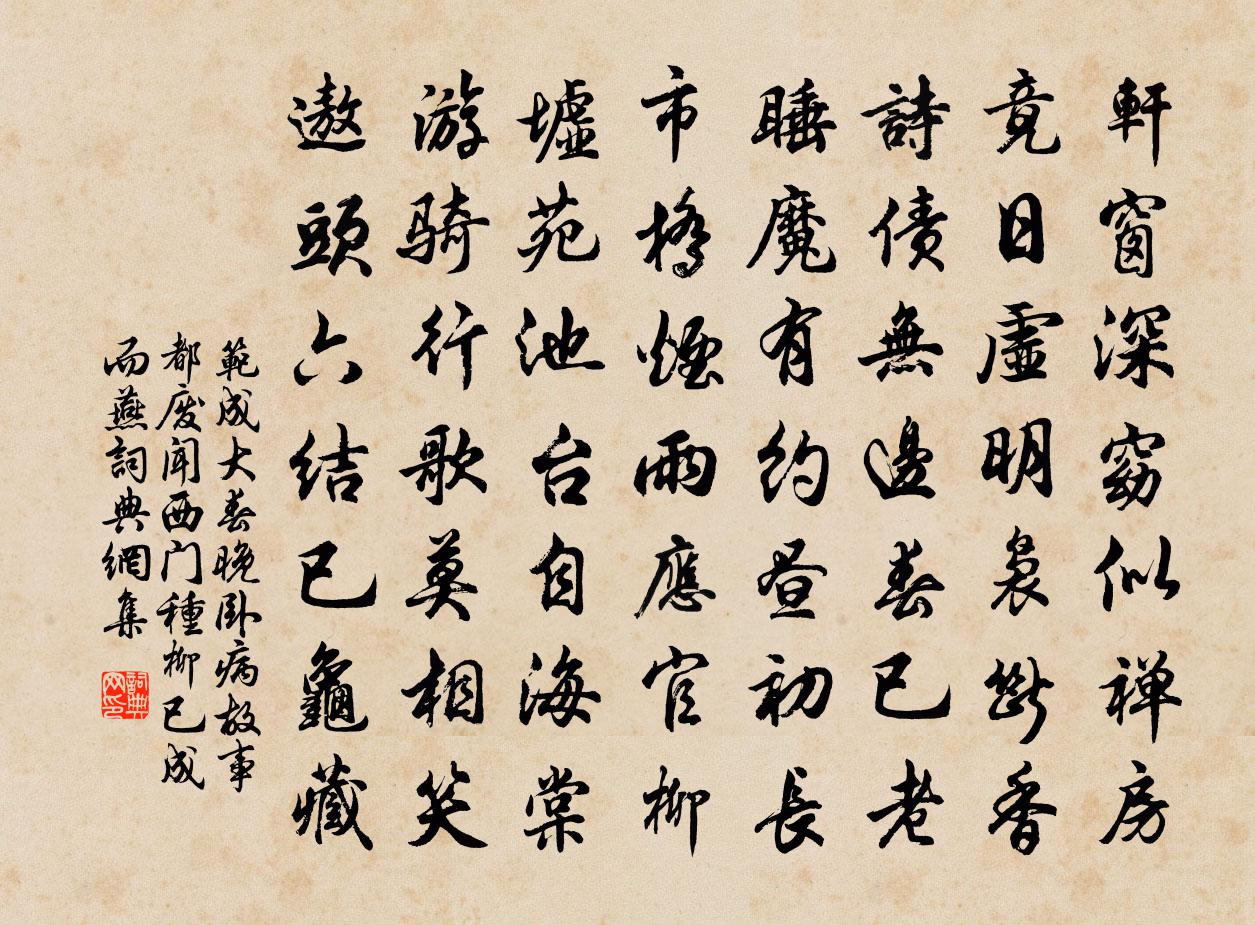 軒窗深窈似禅房
竟日虛明裊斷香
詩債無邊春已老
睡魔有約晝初長
市橋煙雨應官柳
墟苑池台自海棠
游騎行歌莫相笑
遨頭六结已龜藏
範成大春晚卧病故事
都废闻西门種柳已成
而燕詞典網集
詞典
网印